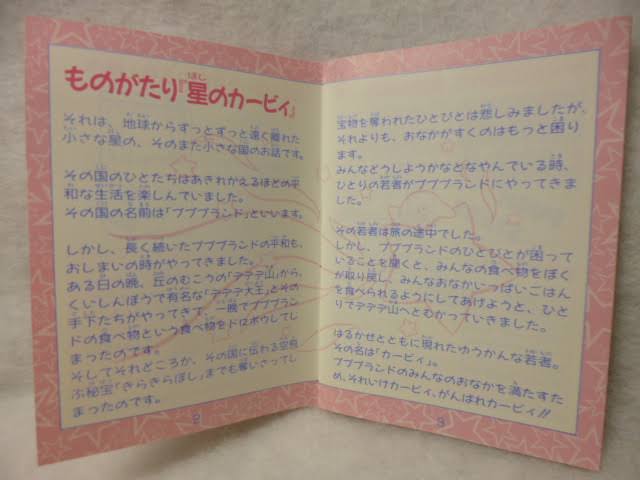 ものがたり『星のカービィ』
それは、地球からずっとずっと遠く離れた
小さな星の、そのまた小さな国のお話です。
その国のひとたちはあきれかえるほどの平
和な生活を楽しんでいました。
その国の名前は「プププランド」といいます。
しかし、長く続いたプププランドの平和も、
おしまいの時がやってきました。
ある日の晩、丘のむこうの「デデデ山」から、
くいしんぼうで有名な「デデデ大王」とその
手下たちがやってきて、一晩でプププラン
ドの食べ物という食べ物をドロボウしてし
まったのです。
そしてそれどころか、その国に伝わる空飛
ぶ秘宝「きらきらぼし」までも奪いさってし
まったのです。
2
宝物を奪われたひとびとは悲しみましたが、
それよりも、おなかがすくのはもっと困り
ます。
みんなどうしようかなとなやんでいる時、
ひとりの若者がプププランドにやってきま
した。
その若者は旅の途中でした。
しかし、プププランドのひとびとが困って
いることを聞くと、みんなの食べ物をぼく
が取り戻し、みんなおなかいっぱいごはん
を食べられるようにしてあげようと、ひと
りでデデデ山へとむかっていきました。
はるかぜとともに現れたゆうかんな若者。
その名は「カービィ」。
プププランドのみんなのおなかを満たすた
め、それいけカービィ、がんばれカービィ!!
3